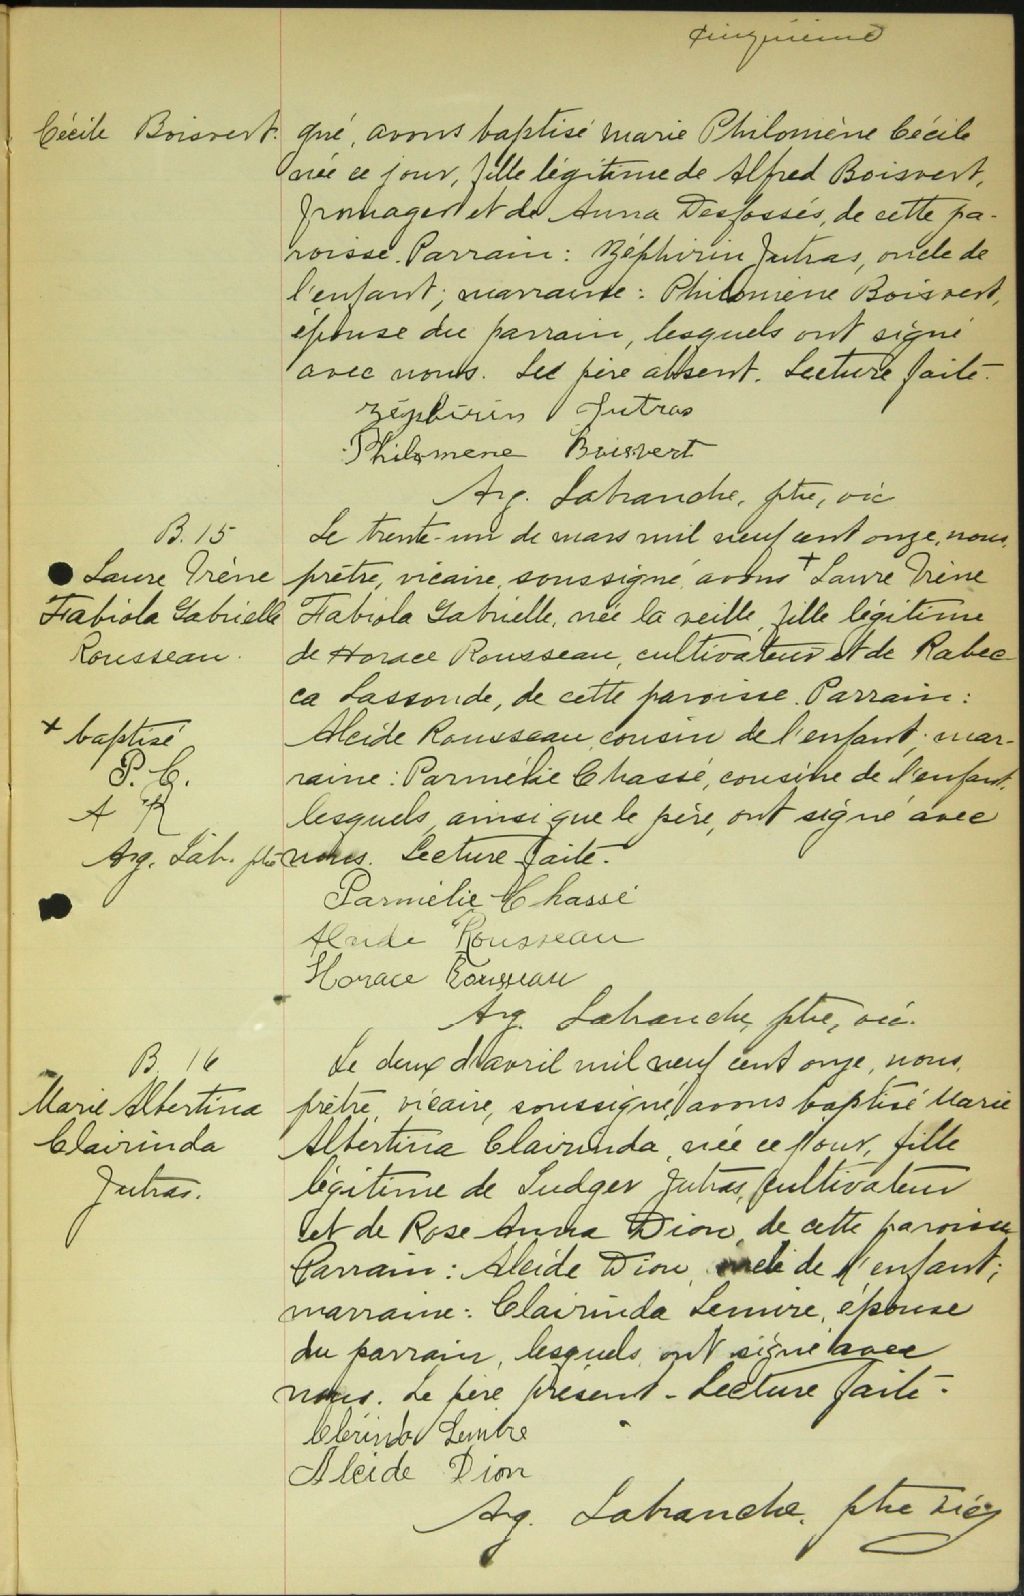 cinquième
Cécile Boisvert.
gné, avons baptisé Marie Philomène Cécile
née ce jour, fille légitime de Alfred Boisvert,
fromager et de Anna Desfossés, de cette pa-
roisse. Parrain: Zéphirin Jutras, oncle de
l'enfant; marraine: Philomène Boisvert,
épouse du parrain, lesquels ont signé
avec nous. Le père absent. Lecture faite.
Zéphirin Jutras
Philomene Boisvert
Arg. Labranche, ptre, vic
B. 15
Laure Irène
Fabiola Gabrielle
Rousseau.
+ baptisé
P. C.
A R
Arg. Lab. ptre
Le trente-un de mars mil neuf cent onze, nous,
prêtre, vicaire, soussigné, avons + Laure Irène
Fabiola Gabrielle, née la veille, fille légitime
de Horace Rousseau, cultivateur et de Rabec-
ca Lassonde, de cette paroisse. Parrain:
Alcide Rousseau, cousin de l'enfant; mar-
raine: Parmélie Chassé, cousine de l'enfant,
lesquels, ainsi que le père, ont signé avec
nous. Lecture faite.
Parmélie Chassé
Alcide Rousseau
Horace Rousseau
Arg. Labranche, ptre, vic.
B. 16
Marie Albertina
Clairinda
Jutras.
Le deux d'avril mil neuf cent onze, nous,
prêtre, vicaire, soussigné, avons baptisé Marie
Albertina Clairinda, née ce jour, fille
légitime de Ludger Jutras, cultivateur
et de Rose Anna Dion, de cette paroisse
Parrain: Alcide Dion, oncle de l'enfant;
marraine: Clairinda Lemire, épouse
du parrain, lesquels ont signé avec
nous. Le père présent - Lecture faite.
Clérinda Lemire
Alcide Dion
Arg. Labranche, ptre vic